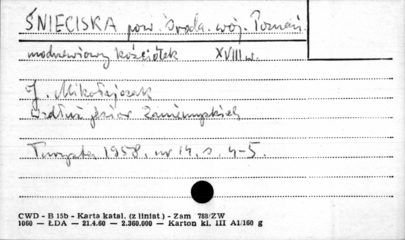 ŚNIECISKA pow. Środa. woj. Poznań.
modrzewiowy kościółek XVIII w.
J. Mikołajczak
Wzdłuż jezior Zaniemyskich
Turysta 1958. nr 14. s. 4-5.
CWD - B 15b - Karta katal. (z liniat.) - Zam 788/ZW
1060 — ŁDA — 21.4.60 — 2.360.000 — Karton kl. III A1/160 g